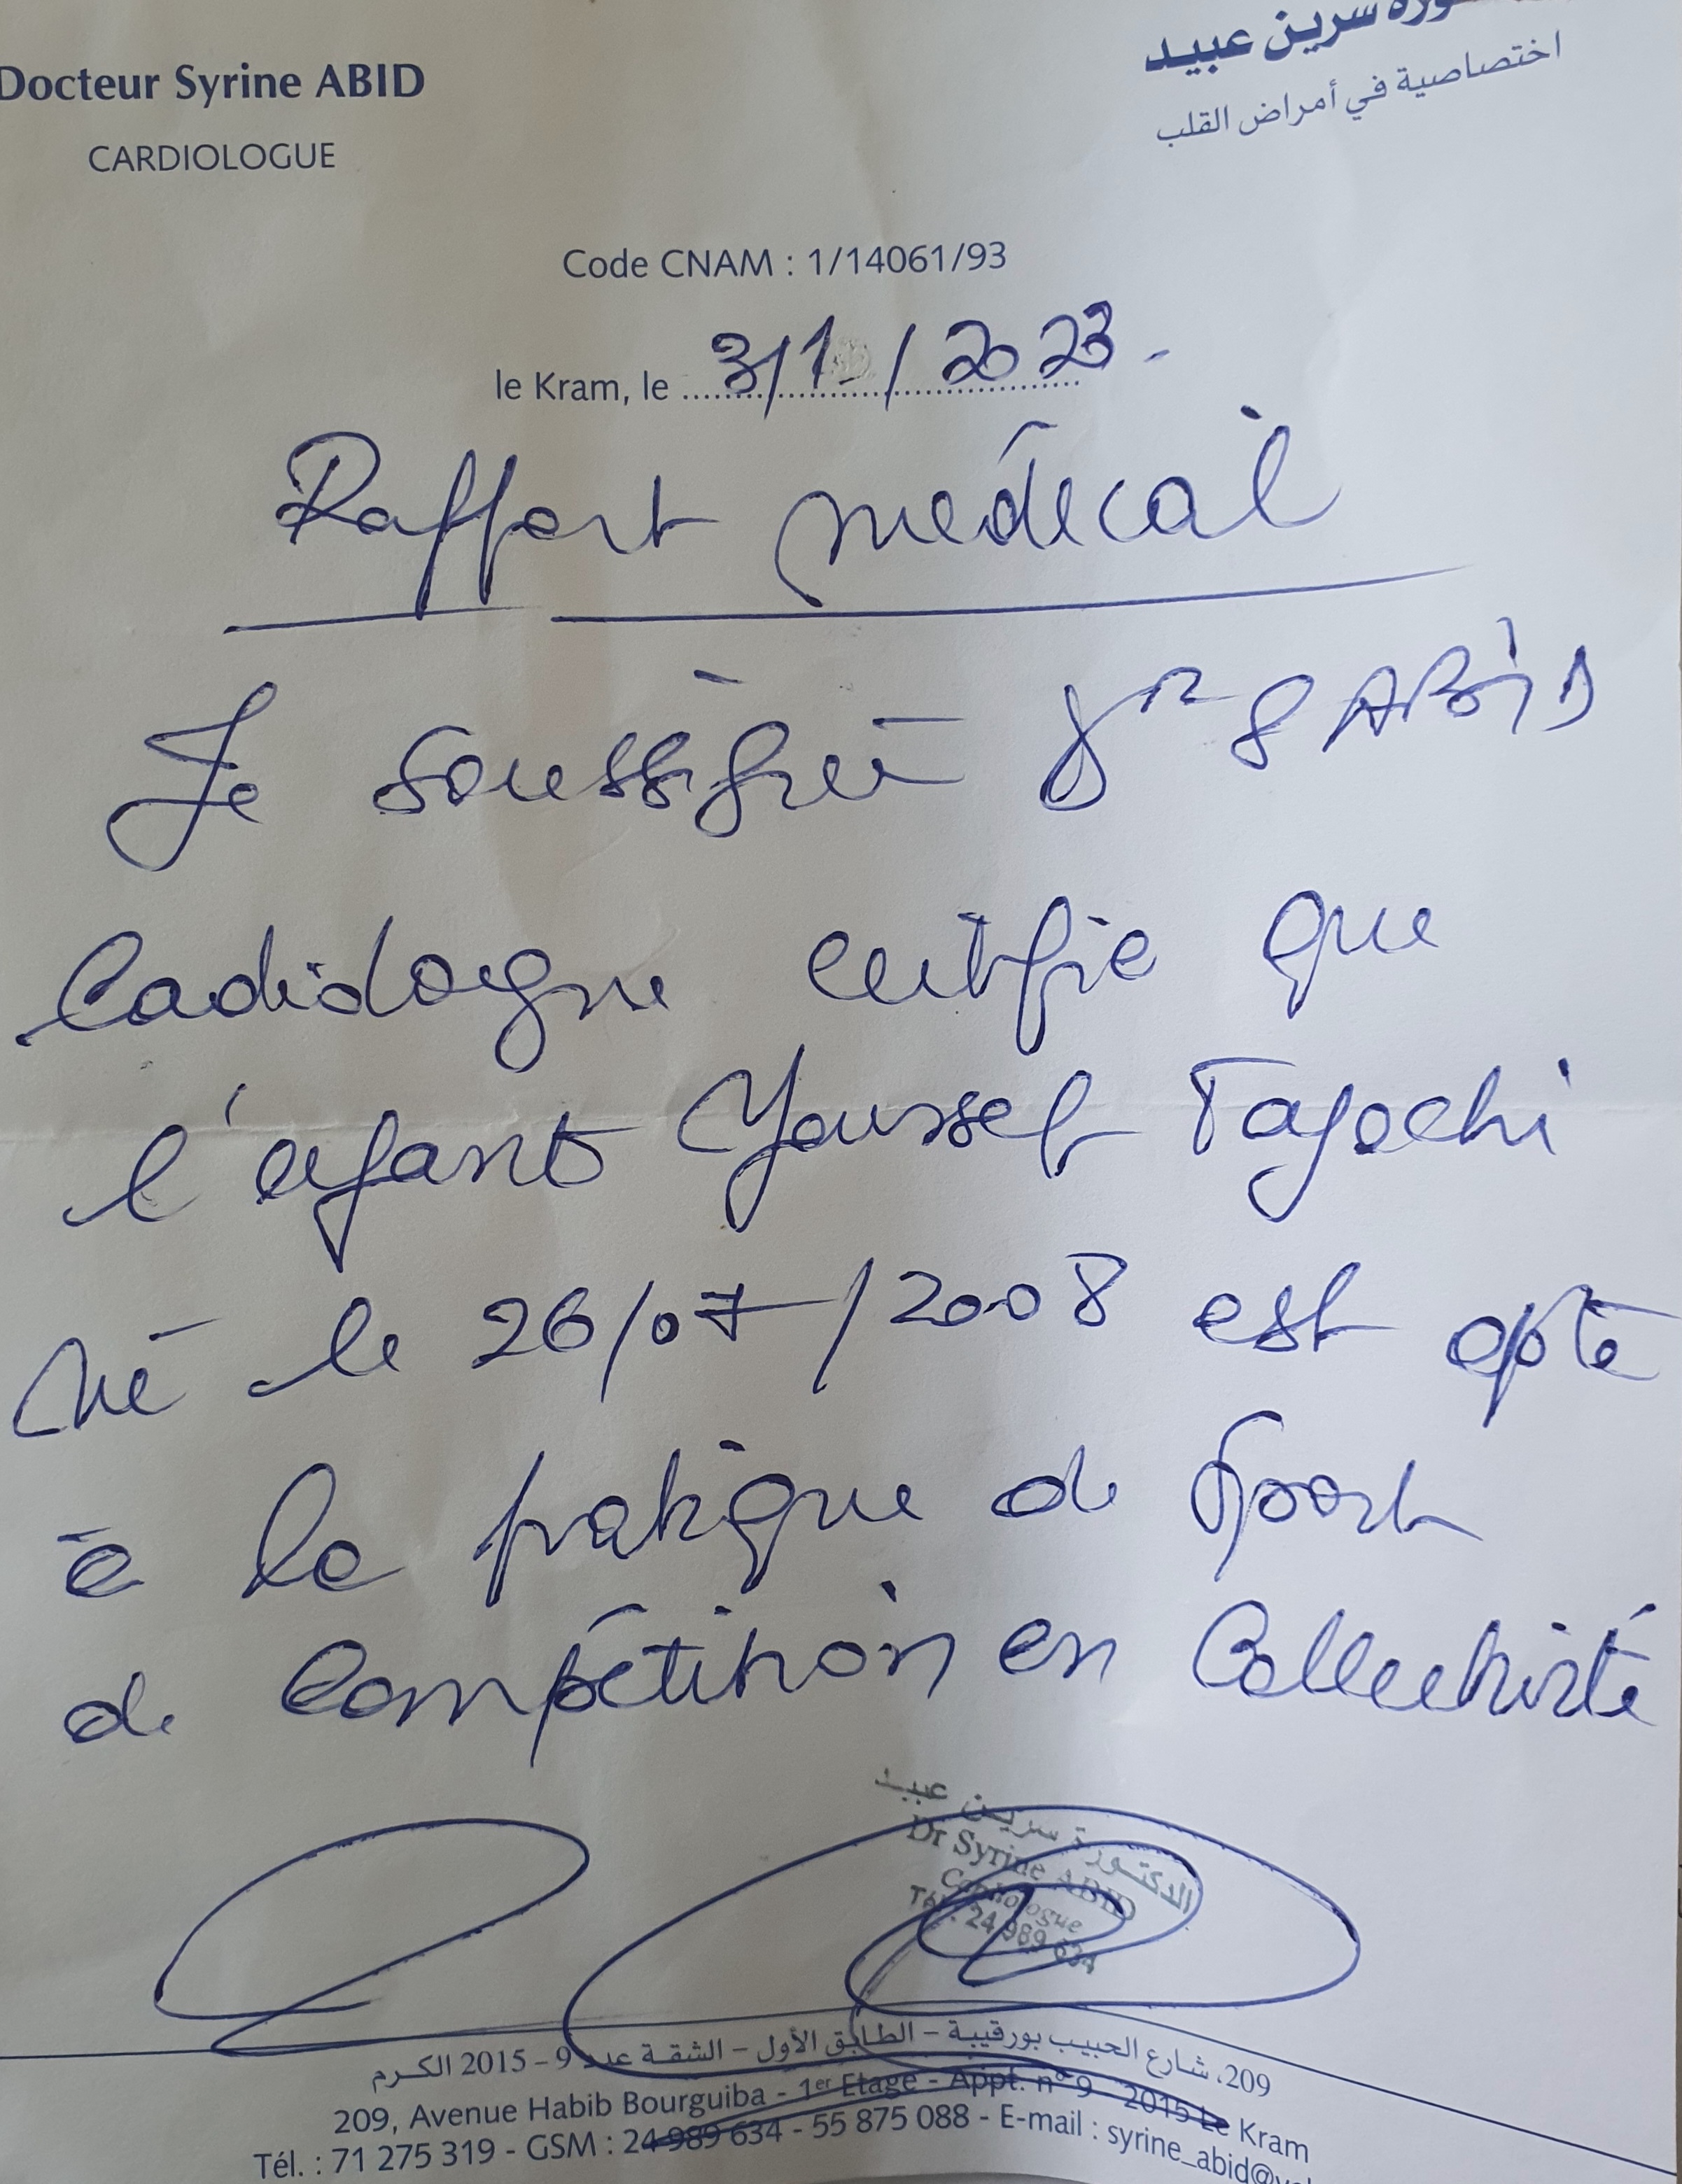 Docteur Syrine ABID
CARDIOLOGUE
سرين عبيد
اختصاصية في أمراض القلب
Code CNAM : 1/14061/93
le Kram, le 3/1 / 2023 -
Rapport médical
Je soussigné Dr S ABID
Cardiologue certifie que
l'enfant Youssef Tajochi
Né le 26/07/2008 est apte
à la pratique de sport
de compétition en collectivité
الدكتورة سرين عبيد
Dr Syrine ABID
Cardiologue
Tél. : 24 989 634
209، شارع الحبيب بورقيبة - الطابق الأول - الشقة عدد 9 - 2015 الكرم
209, Avenue Habib Bourguiba - 1er Etage - Appt. n° 9 - 2015 Le Kram
Tél. : 71 275 319 - GSM : 24 989 634 - 55 875 088 - E-mail : syrine_abid@